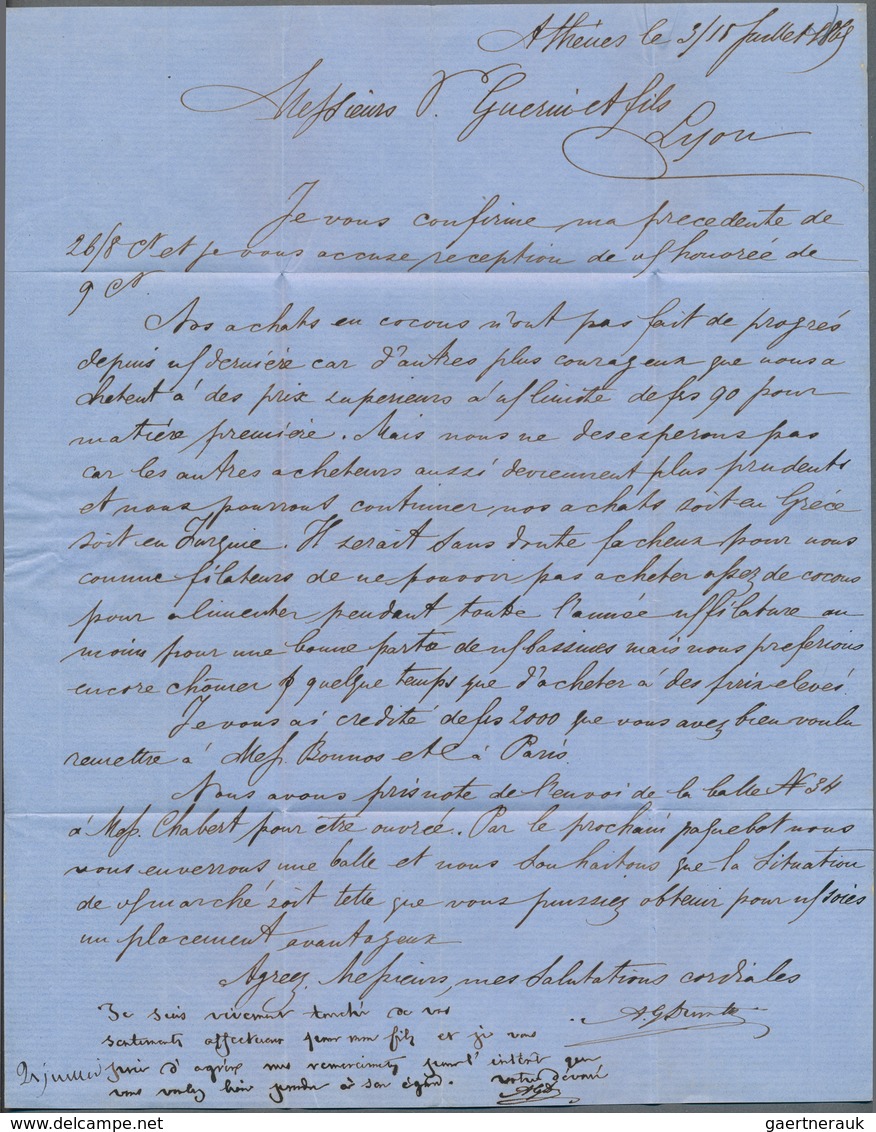 Athènes le 3/15 Juillet 1865
Messieurs V. Guerin et fils
Lyon
Je vous confirme ma precedente de
26/8 Ct et je vous accuse reception de v/ honorée de
9 Ct
Nos achats en cocons n'ont pas fait de progrés
depuis n/ derniére car d'autres plus courageux que nous a
chetent á des prix superieurs á n/ limite de frs 90 pour
matiére premiére. Mais nous ne desesperons pas
car les autres acheteurs aussi deviennent plus prudents
et nous pourrons continuer nos achats soit en Gréce
soit en Turquie. Il serait sans doute facheux pour nous
comme filateurs de ne pouvoir pas acheter assez de cocons
pour alimenter pendant toute l'année n/ filature au
moins pour une bonne partie de n/ bassines mais nous preferions
encore chômer quelque temps que d'acheter á des prix elevés.
Je vous ai credité de frs 2000 que vous avez bien voulu
remettre á Mess. Bonnos et C á Paris.
Nous avons pris note de l'envoi de la balle N 34
á Mess. Chabert pour être ouvrée. Par le prochain paquebot nous
vous enverrons une balle et nous souhaitons que la situation
de v/ marché soit telle que vous puissiez obtenir pour n/ soies
un placement avantageux
Agreez, Messieurs, mes salutations cordiales
Je suis vivement touché de vos
sentiments affectueux pour mon fils et je vous
prie d'agréer mes remerciments pour l'intérêt que
vous voulez bien prendre à son égard. votre dévoué
21 juillet
gaertnerauk
delcampe.net